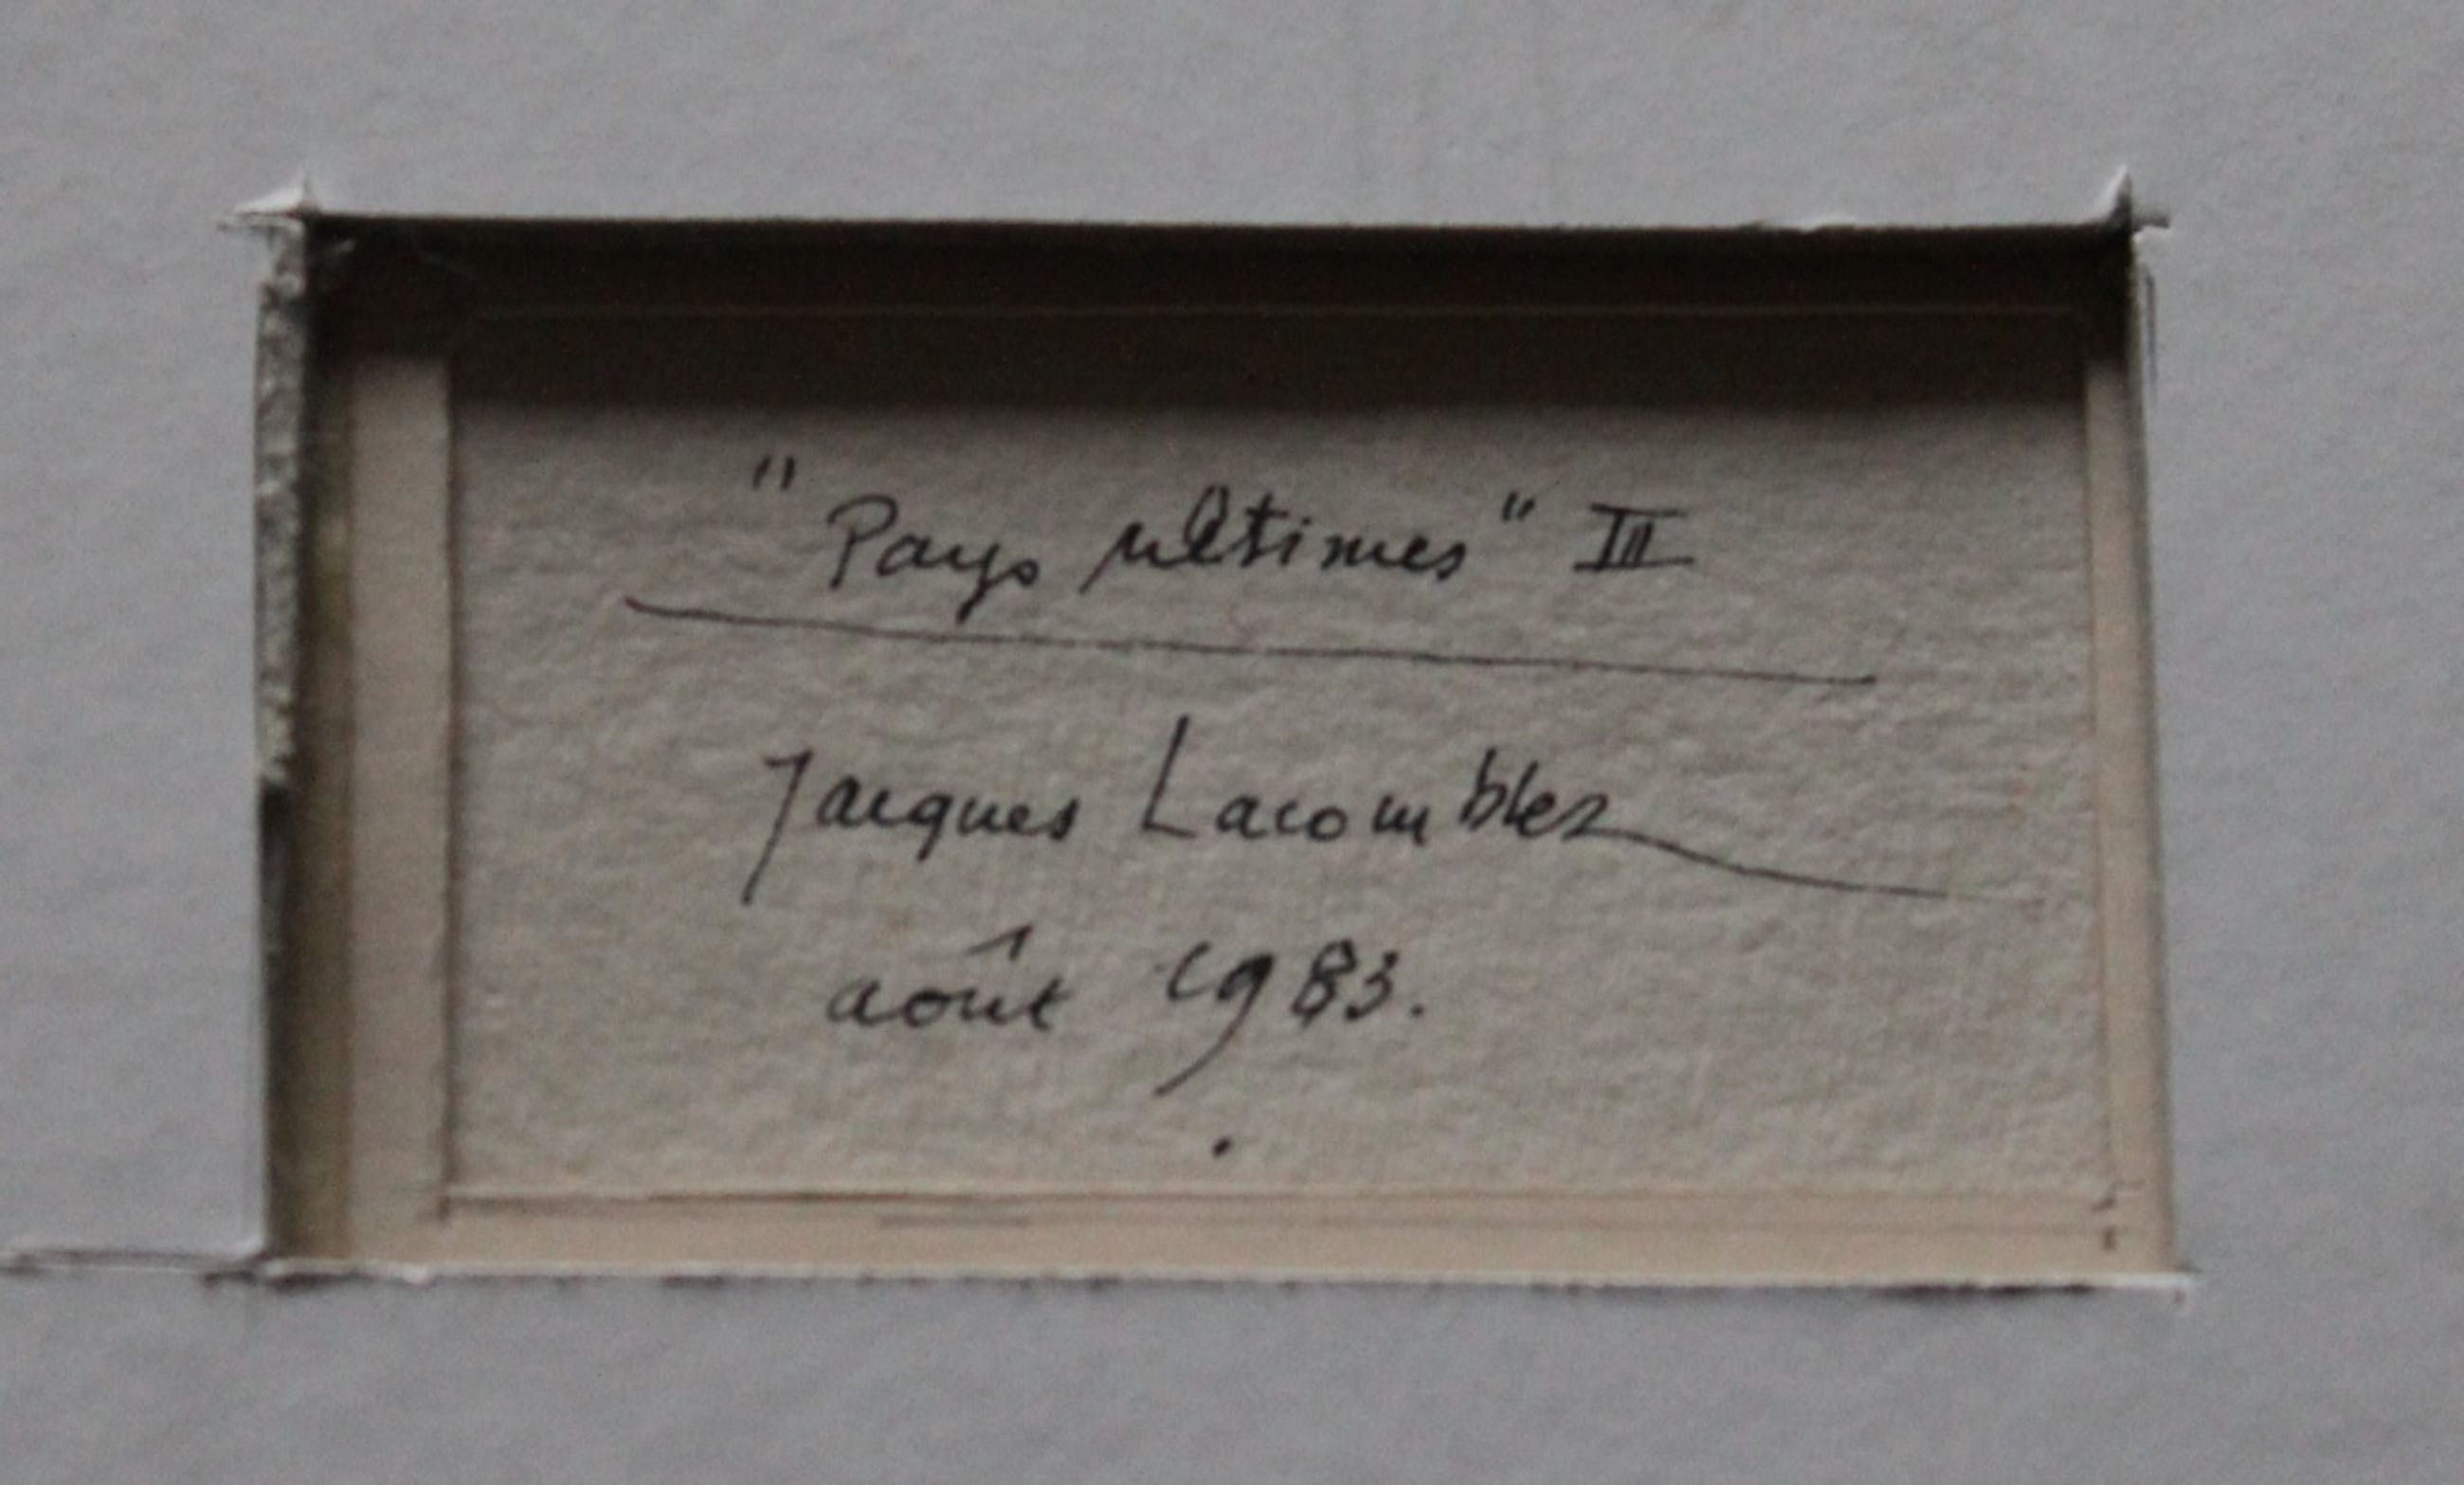 "Pays ultimes" III
Jacques Lacomblez
août 1983.